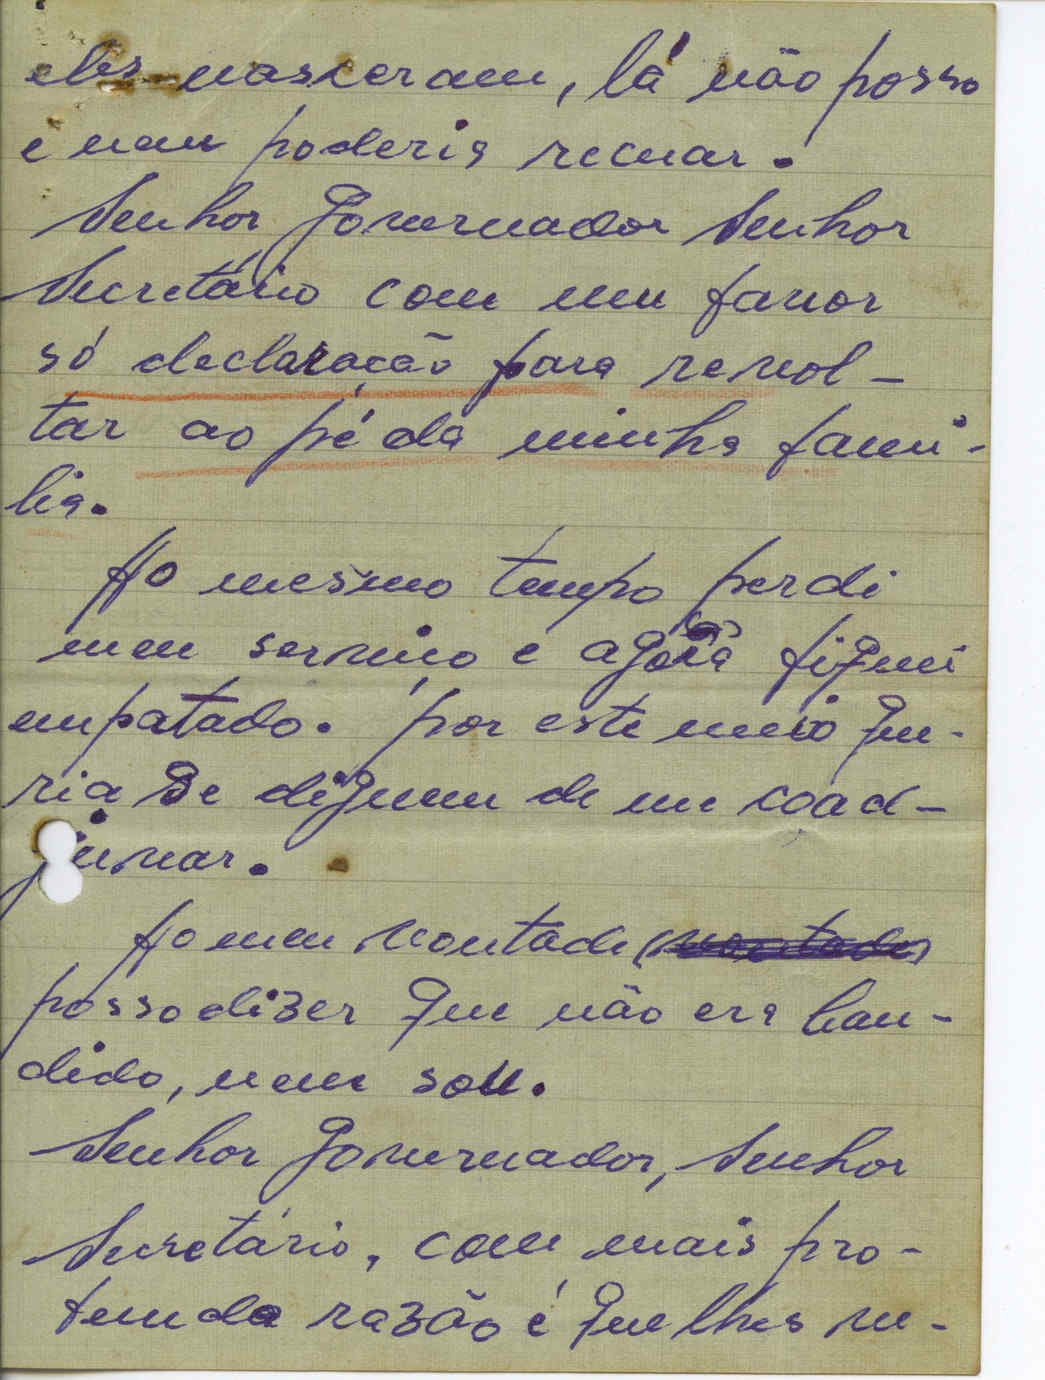 eles nasceram, lá não posso
e nem poderia recuar.
Senhor Governador Senhor
Secretário com um favor
só declaração para revol-
tar ao pé da minha famí-
lia.
Ao mesmo tempo perdi
meu serviço e agora fiquei
empatado. por este meio que-
ria se dignem de me coad-
juvar.
Ao meu vontade (vontade)
posso dizer que não era ban-
dido, nem sou.
Senhor Governador, Senhor
Secretário, com mais pro-
funda razão é que lhes ve-